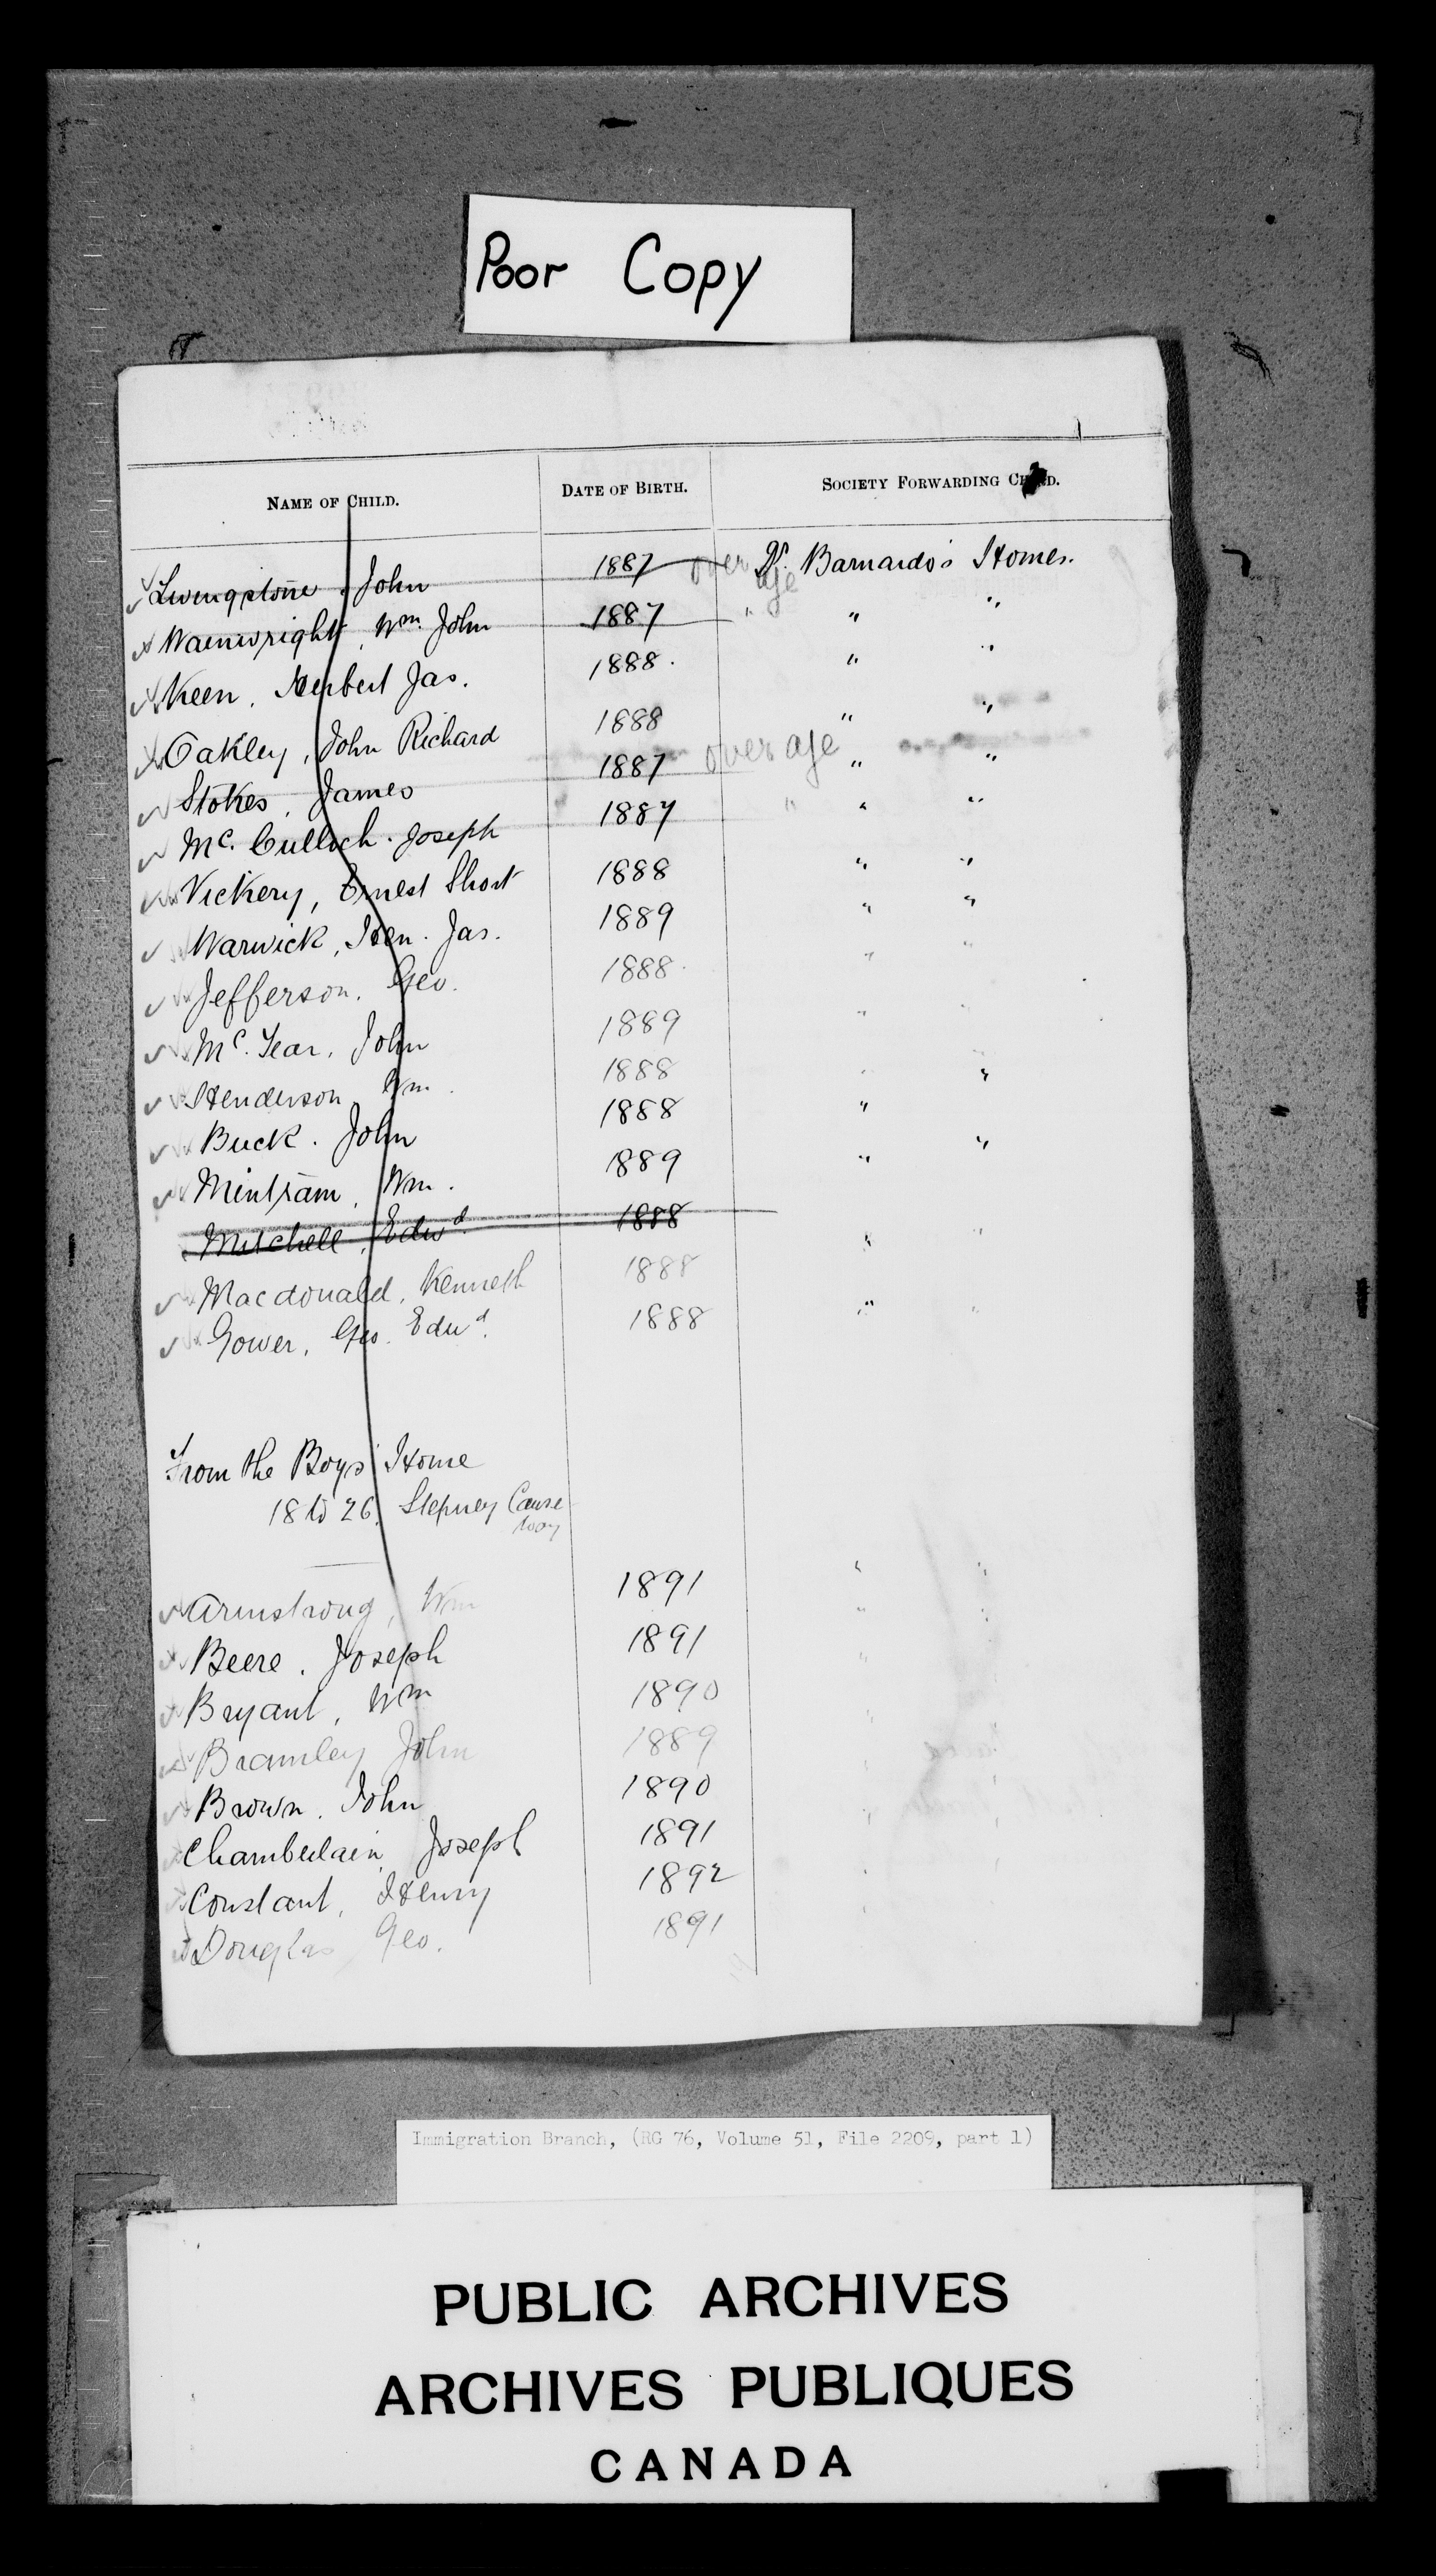 Poor Copy
NAME OF CHILD. DATE OF BIRTH. SOCIETY FORWARDING CHILD.
Livingstone, John 1887 over age Dr. Barnardo's Homes.
Wainwright, Wm. John 1887 " " "
Keen, Herbert Jas. 1888. " "
Oakley, John Richard 1888 " "
Stokes, James 1887 over age " "
Mc. Culloch. Joseph 1887 " " "
Vickery, Ernest Short 1888 " "
Warwick, Hen. Jas. 1889 " "
Jefferson, Geo. 1888. " "
Mc. Lear, John 1889 " "
Henderson, Wm. 1888 " "
Buck. John 1888 "
Mintram, Wm. 1889 " "
Mitchell, Edwd. 1888
Macdonald, Kenneth 1888 " "
Gower, Geo. Edwd. 1888 " "
From the Boys' Home
18 to 26, Stepney Cause
way
Armstrong, Wm 1891 " "
Beere, Joseph 1891 " "
Bryant, Wm 1890 "
Bramley John 1889 "
Brown, John 1890 "
Chamberlain, Joseph 1891 "
Constant, Henry 1892 "
Douglas, Geo. 1891 "
Immigration Branch, (RG 76, Volume 51, File 2209, part 1)
PUBLIC ARCHIVES
ARCHIVES PUBLIQUES
CANADA